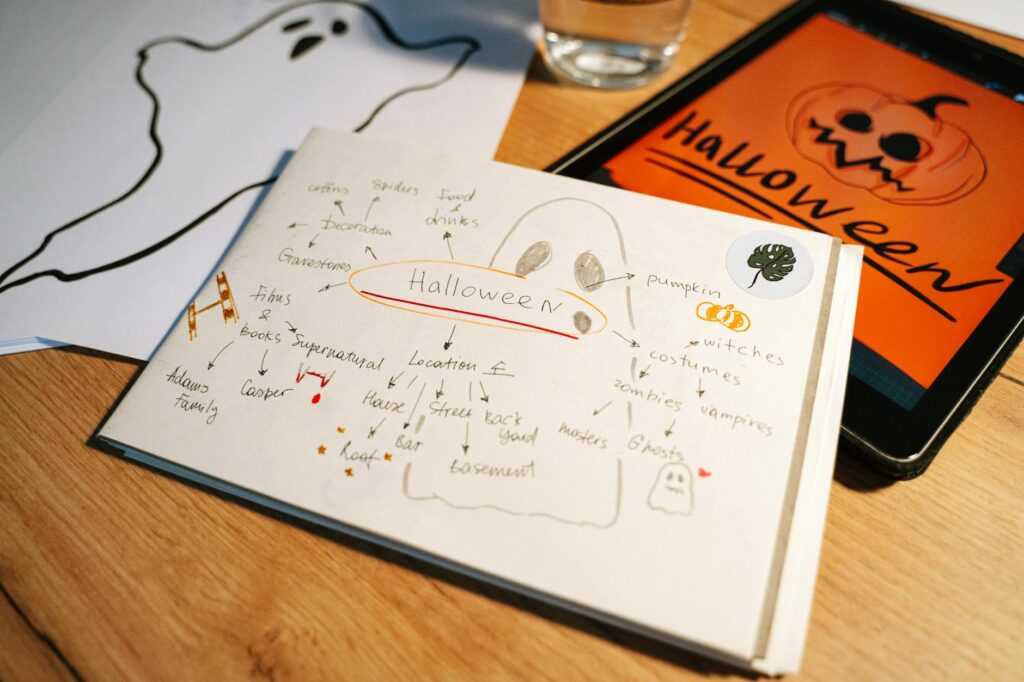 Halloween
coffins
spiders
Food
&
drinks
Decoration
Gravestones
Halloween
pumpkin
Films
&
Books
Supernatural
Adams
Family
Casper
Location
House
Street
Back
yard
Bar
Roof
Basement
costumes
witches
zombies
vampires
Ghosts